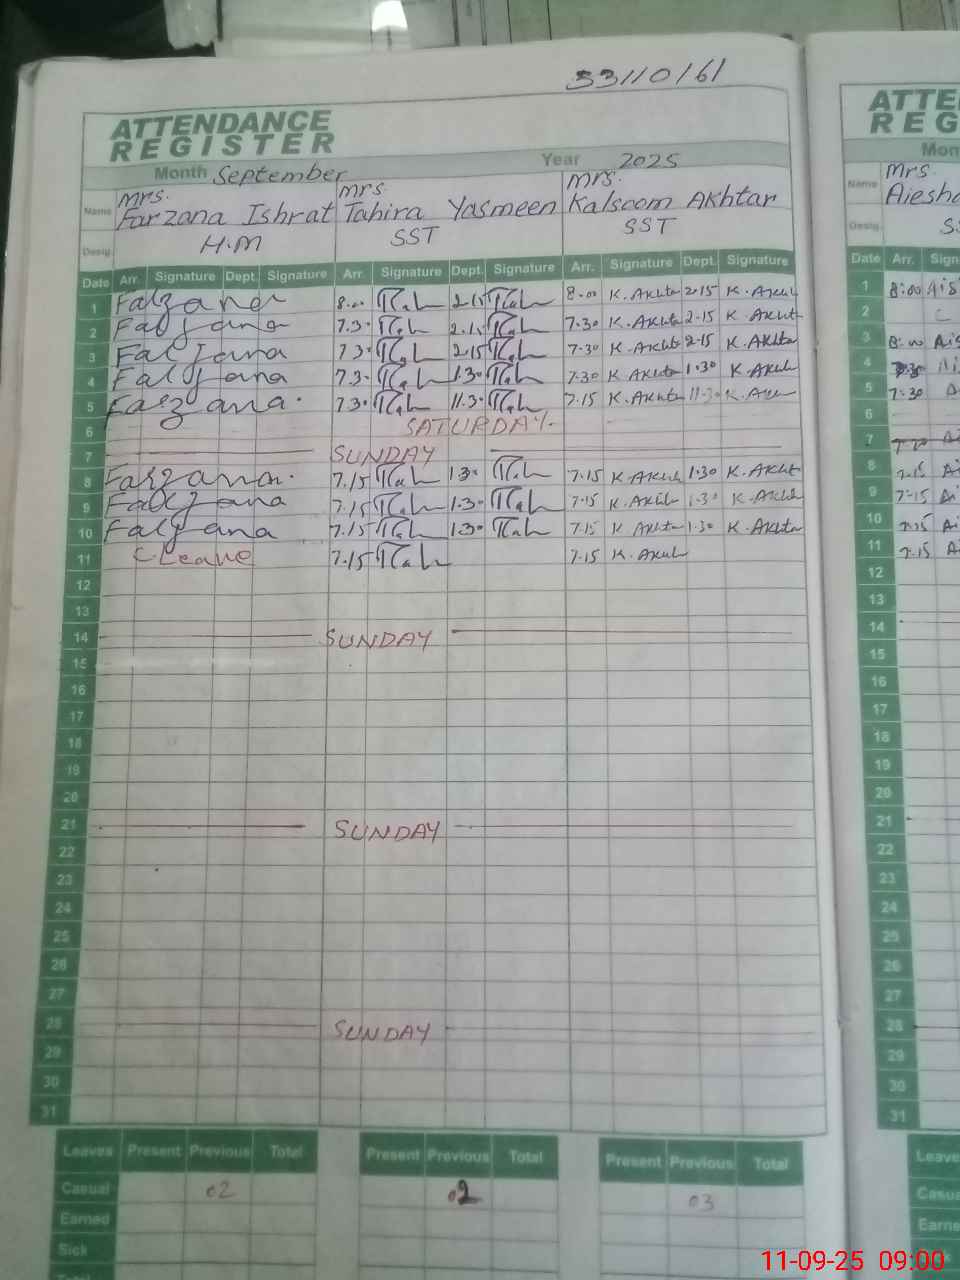 53110161
ATTENDANCE
REGISTER
Month September Year 2025
Name Mrs. Farzana Ishrat Mrs. Tahira Yasmeen Mrs. Kalsoom Akhtar
Desig. H.M SST SST
Date Arr. Signature Dept. Signature Arr. Signature Dept. Signature Arr. Signature Dept. Signature
1 Farzana 8.00 Tah 2.15 Tah 8.00 K. Akhtar 2.15 K. Akhtar
2 Farzana 7.30 Tah 2.15 Tah 7.30 K. Akhtar 2.15 K. Akhtar
3 Farzana 7.30 Tah 2.15 Tah 7.30 K. Akhtar 2.15 K. Akhtar
4 Farzana 7.30 Tah 1.30 Tah 7.30 K. Akhtar 1.30 K. Akhtar
5 Farzana. 7.30 Tah 11.30 Tah 7.15 K. Akhtar 11.30 K. Akhtar
6 SATURDAY.
7 SUNDAY
8 Farzana. 7.15 Tah 1.30 Tah 7.15 K Akhtar 1.30 K. Akhtar
9 Farzana 7.15 Tah 1.30 Tah 7.15 K Akhtar 1.30 K Akhtar
10 Farzana 7.15 Tah 1.30 Tah 7.15 K Akhtar 1.30 K Akhtar
11 C.Leave 7.15 Tah 7.15 K. Akhtar
12
13
14 SUNDAY
15
16
17
18
19
20
21 SUNDAY
22
23
24
25
26
27
28 SUNDAY
29
30
31
Leaves Present Previous Total Present Previous Total Present Previous Total
Casual 02 02 03
Earned
Sick
Total
ATTE
REG
Mon
Name Mrs Aiesha
Desig.
Date Arr. Sign
1 8:00
2 C
3 8:00
4
5 7-30
6
7
8 7.15
9 7-15
10 7.15
11 7.15
12
13
14
15
16
17
18
19
20
21
22
23
24
25
26
27
28
29
30
31
Leave
Casu
Earne
11-09-25 09:00